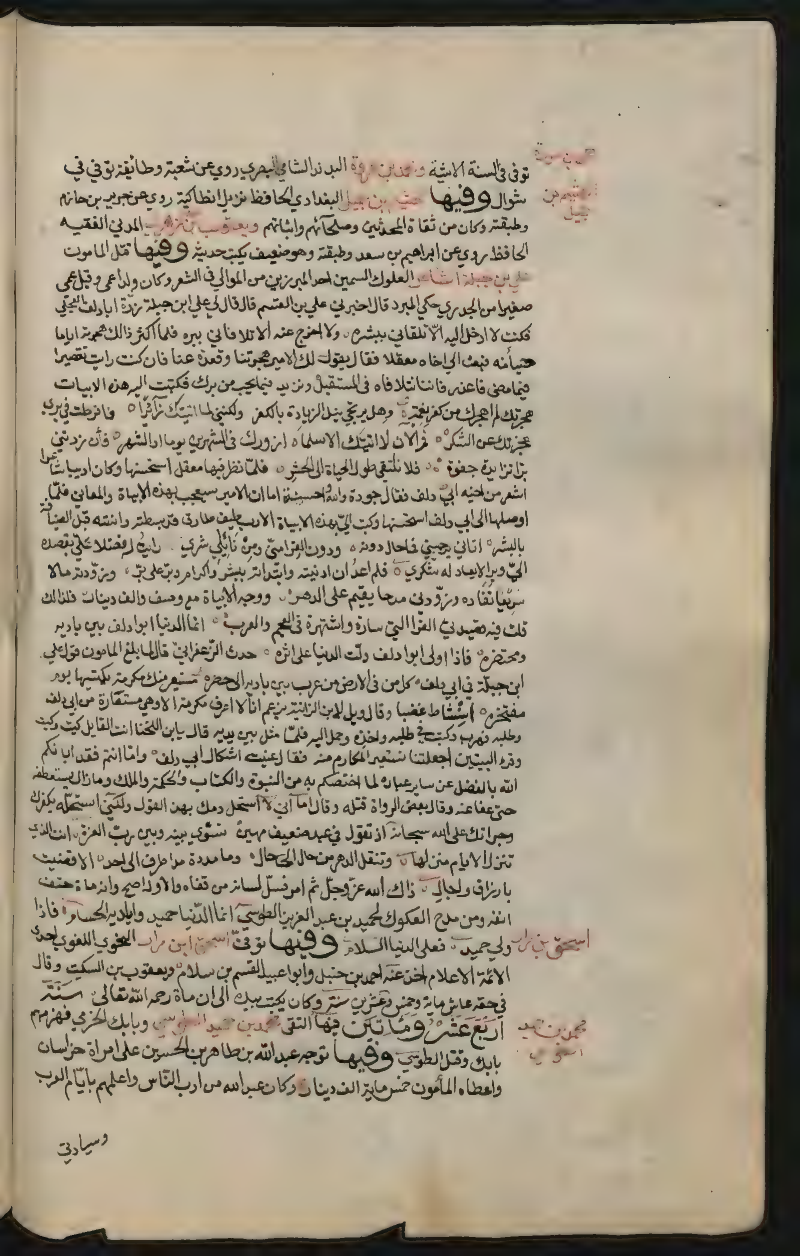 توفى فى السنة الاتية ومحمد بن عروة البدند الشامي البصري روي عن شعبة وطائفة توفي في
شوال وفيها هيثم بن جميل البغدادي الحافظ نزيل انطاكية روي عن جرير بن حازم
وطبقته وكان من ثقاة المحدثين وصلحائهم واثباتهم ويعقوب بن محمد الزهري المدني الفقيه
الحافظ يروي عن ابراهيم بن سعد وطبقته وهو ضعيف يكتب حديثه وفيها قتل المامون
علي بن جبلة الشاعر العكوك السمين احد المبرزين من الموالي فى الشعر وكان ولد اعمى وقيل عمى
صغيرا من الجدري حكى المبرد قال اخبرني علي بن القسم قال قال لي علي ابن جبلة زرة ابا دلف العجلي
فكنت لا ادخل اليه الا تلقاني ببشره ولا اخرج عنه الا تلافاني ببره فلما اكثر ذالك هجرته اياما
حياء منه فبعث الي اخاه معقلا فقال يقول لك الامير هجرتنا وقعدة عنا فان كنت رايت تقصيرا
فيما مضى فاعذر فاننا نتلافاه فى المستقبل ونزيد فيما يجب من برك فكتبت اليه هذه الابيات
هجرتك لم اهجرك من كفر نعمة وهل يرتجى نيل الزيادة بالكفر ولكنني لما اتيتك زائرا فافرطت في بري
عجزت عن الشكر فم الان لا اتيتك الا مسلما ازورك فى الشهرين يوما او الشهر فان زدتني
برا تزايدة جفوة فلا نلتقي طول الحياة الى الحشر فلما نظر فيها معقل استحسنها وكان اديبا شاعرا
اشعر من اخيه ابي دلف فقال جودة والله واحسنة اما ان الامير سيعجب بهذه الابياة والمعاني فلما
اوصلها الى ابي دلف استحسنها وكتب الي بهذه الابياة الا رب ضيف طارق قد بسطته وانسته قبل الضيافة
بالبشر اتاني يرجيني فما حال دونه ودون القرا مني ومن نائلي ستري رايت له فضلا علي بقصده
الي وبرا لا يعاد له شكري فلم اعد ان ادنيته وابتداته ببشر واكرام وبر على بر وزودته مالا
سريعا نفاده وزودني مدحا يقيم على الدهر ووجه الابياة مع وصيف والف دينار فلذالك
قلت فيه قصيدتي الغرا التي سارة واشتهرة فى العجم والعرب انما الدنيا ابوا دلف بين باديه
ومحتضره فاذا اولى ابوا دلف ولت الدنيا على اثره حدث الزعفراني قال لما بلغ المامون قول علي
ابن جبلة في ابي دلف كل من فى الارض من عرب بين باديه الى حضره مستعير منك مكرمة يكتسيها يوم
مفتخره استشاط غضبا وقال ويل لابن الزانية يزعم انا لا نعرف مكرمة الا وهي مستعارة من ابي دلف
وطلبه فهرب وكتب في طلبه واخذه وحمل اليه فلما مثل بين يديه قال يابن اللخنا انت القايل كيت وكيت
وقره البيتين اجعلتنا نستعير المكارم منه فقال عنيت اشكال ابي دلف واما انتم فقد ابانكم
الله بالفضل عن ساير عباده لما اختصكم به من النبوة والكتاب والحكمة والملك وما زال يستعطفه
حتى عفا عنه وقال بعض الرواة قتله وقال اما اني لا استحل دمك بهذ القول ولكني استحله بكفرك
وجراتك على الله سبحانه اذ تقول في عبد ضعيف مهين تسوي بينه وبين رب العزة انت الذي
تنزل الايام منزلها وتنقل الدهر من حال الى حال وما مددة مدا طرف الى احد الا قضيت
بارزاق واجال ذاك الله عز وجل ثم امر فسل لسانه من قفاه والاول اصح وانه مات حتف
انفه ومن مدح العكوك لحميد بن عبد العزيز الطوسي انما الدنيا حميد واياديه الحسام فاذا
ولي حميد فعلى الدنيا السلام وفيها توفي اسحق ابن مرار النحوي اللغوي احد
الائمة الاعلام اخذ عنه احمد بن حنبل وابوا عبيد القسم بن سلام ويعقوب بن السكيت وقال
في حقه عاش ماية وخمس وعشرين سنة وكان يكتب بيده الى ان ماة رحمه الله تعالى سنة
اربع عشر ومائتين فيها التقى محمد بن حميد الطوسي وبابك الخرمي فهزمهم
بابك وقتل الطوسي وفيها توجه عبد الله بن طاهر بن الحسين على امراة خراسان
واعطاه المأمون خمس ماية الف دينار وكان عبد الله من ادب الناس واعلمهم بايام العرب
وسيادتي
هيثم بن
جميل
اسحق بن مرار
محمد بن حميد
الطوسي